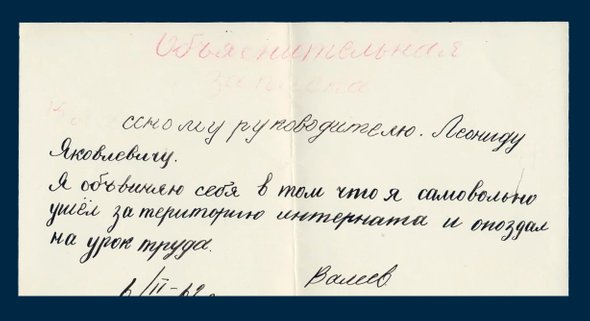 Объяснительная
записка
ссному руководителю. Леониду
Яковлевичу.
Я объвиняю себя в том что я самовольно
ушёл за територию интерната и опоздал
на урок труда.
Валеев